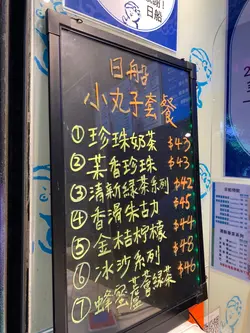 日船
小丸子套餐
① 珍珠奶茶 $43
② 茶香珍珠 $43
③ 清新綠茶系列 $42
④ 香滑朱古力 $45
⑤ 金桔柠檬 $44
⑥ 冰沙系列 $48
⑦ 蜂蜜蘆薈綠茶 $46
日船